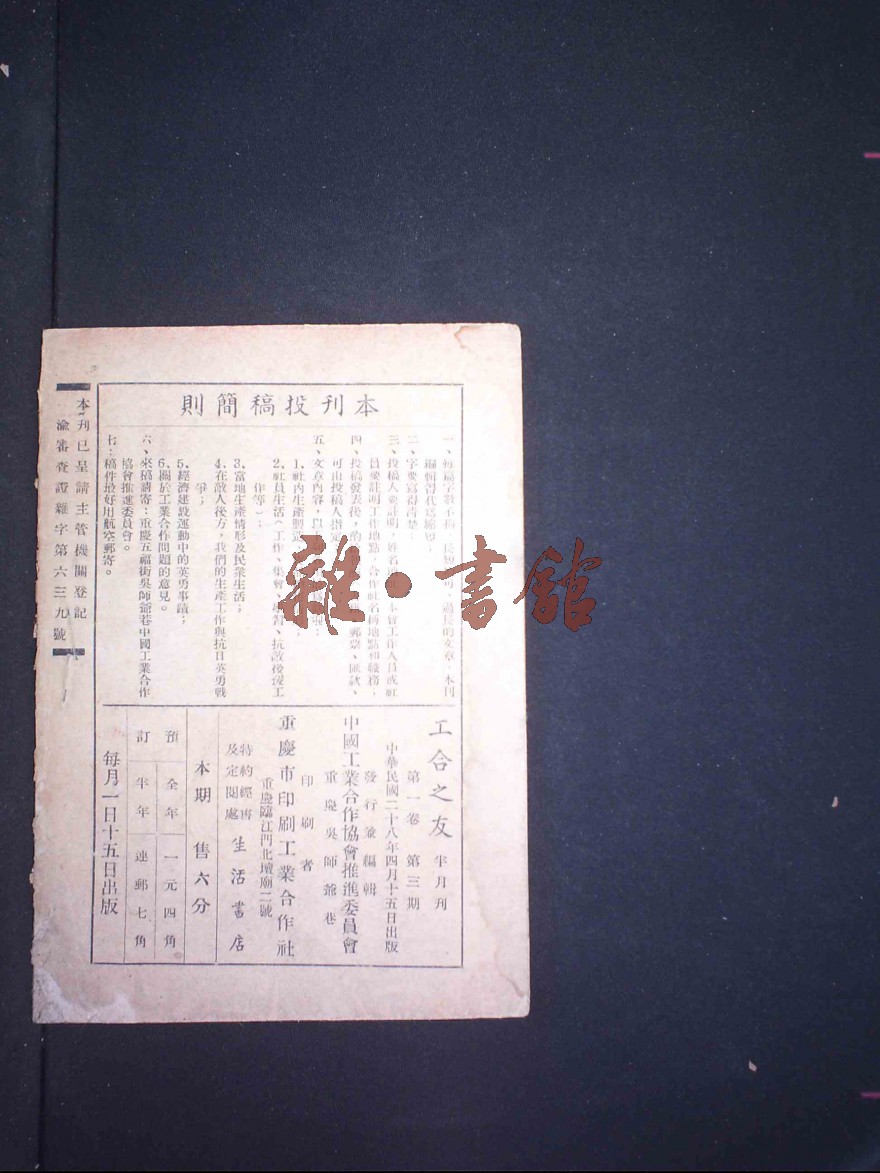 本刊投稿簡則
一、每篇字數不拘，長短，過長的文章，本刊
編輯得代爲縮短；
二、字要寫得清楚；
三、投稿人要註明，姓名本會工作人員或社
員要註明工作地點，合作社名稱地點和職務；
四、投稿發表後，的郵票、匯款、
可由投稿人指定
五、文章內容，以
1.社內生產製造
2.社員生活（工作、集會、學習、抗敵後援工
作等）；
3.當地生產情形及民衆生活；
4.在敵人後方，我們的生產工作與抗日英勇戰
爭；
5.經濟建設運動中的英勇事蹟；
6.關於工業合作問題的意見。
六、來稿請寄：重慶五福街吳師爺巷中國工業合作
協會推進委員會。
七、稿件最好用航空郵寄。
本刊已呈請主管機關登記
渝審查證雜字第六三九號
工合之友 半月刊
第一卷 第三期
中華民國二十八年四月十五日出版
發行兼編輯
中國工業合作協會推進委員會
重慶吳師爺巷
印刷者
重慶市印刷工業合作社
重慶臨江門北壇廟二號
特約經售
及定閱處
生活書店
本期 售六分
預 全年 一元四角
訂 半年 連郵七角
每月一日十五日出版
雜·書館